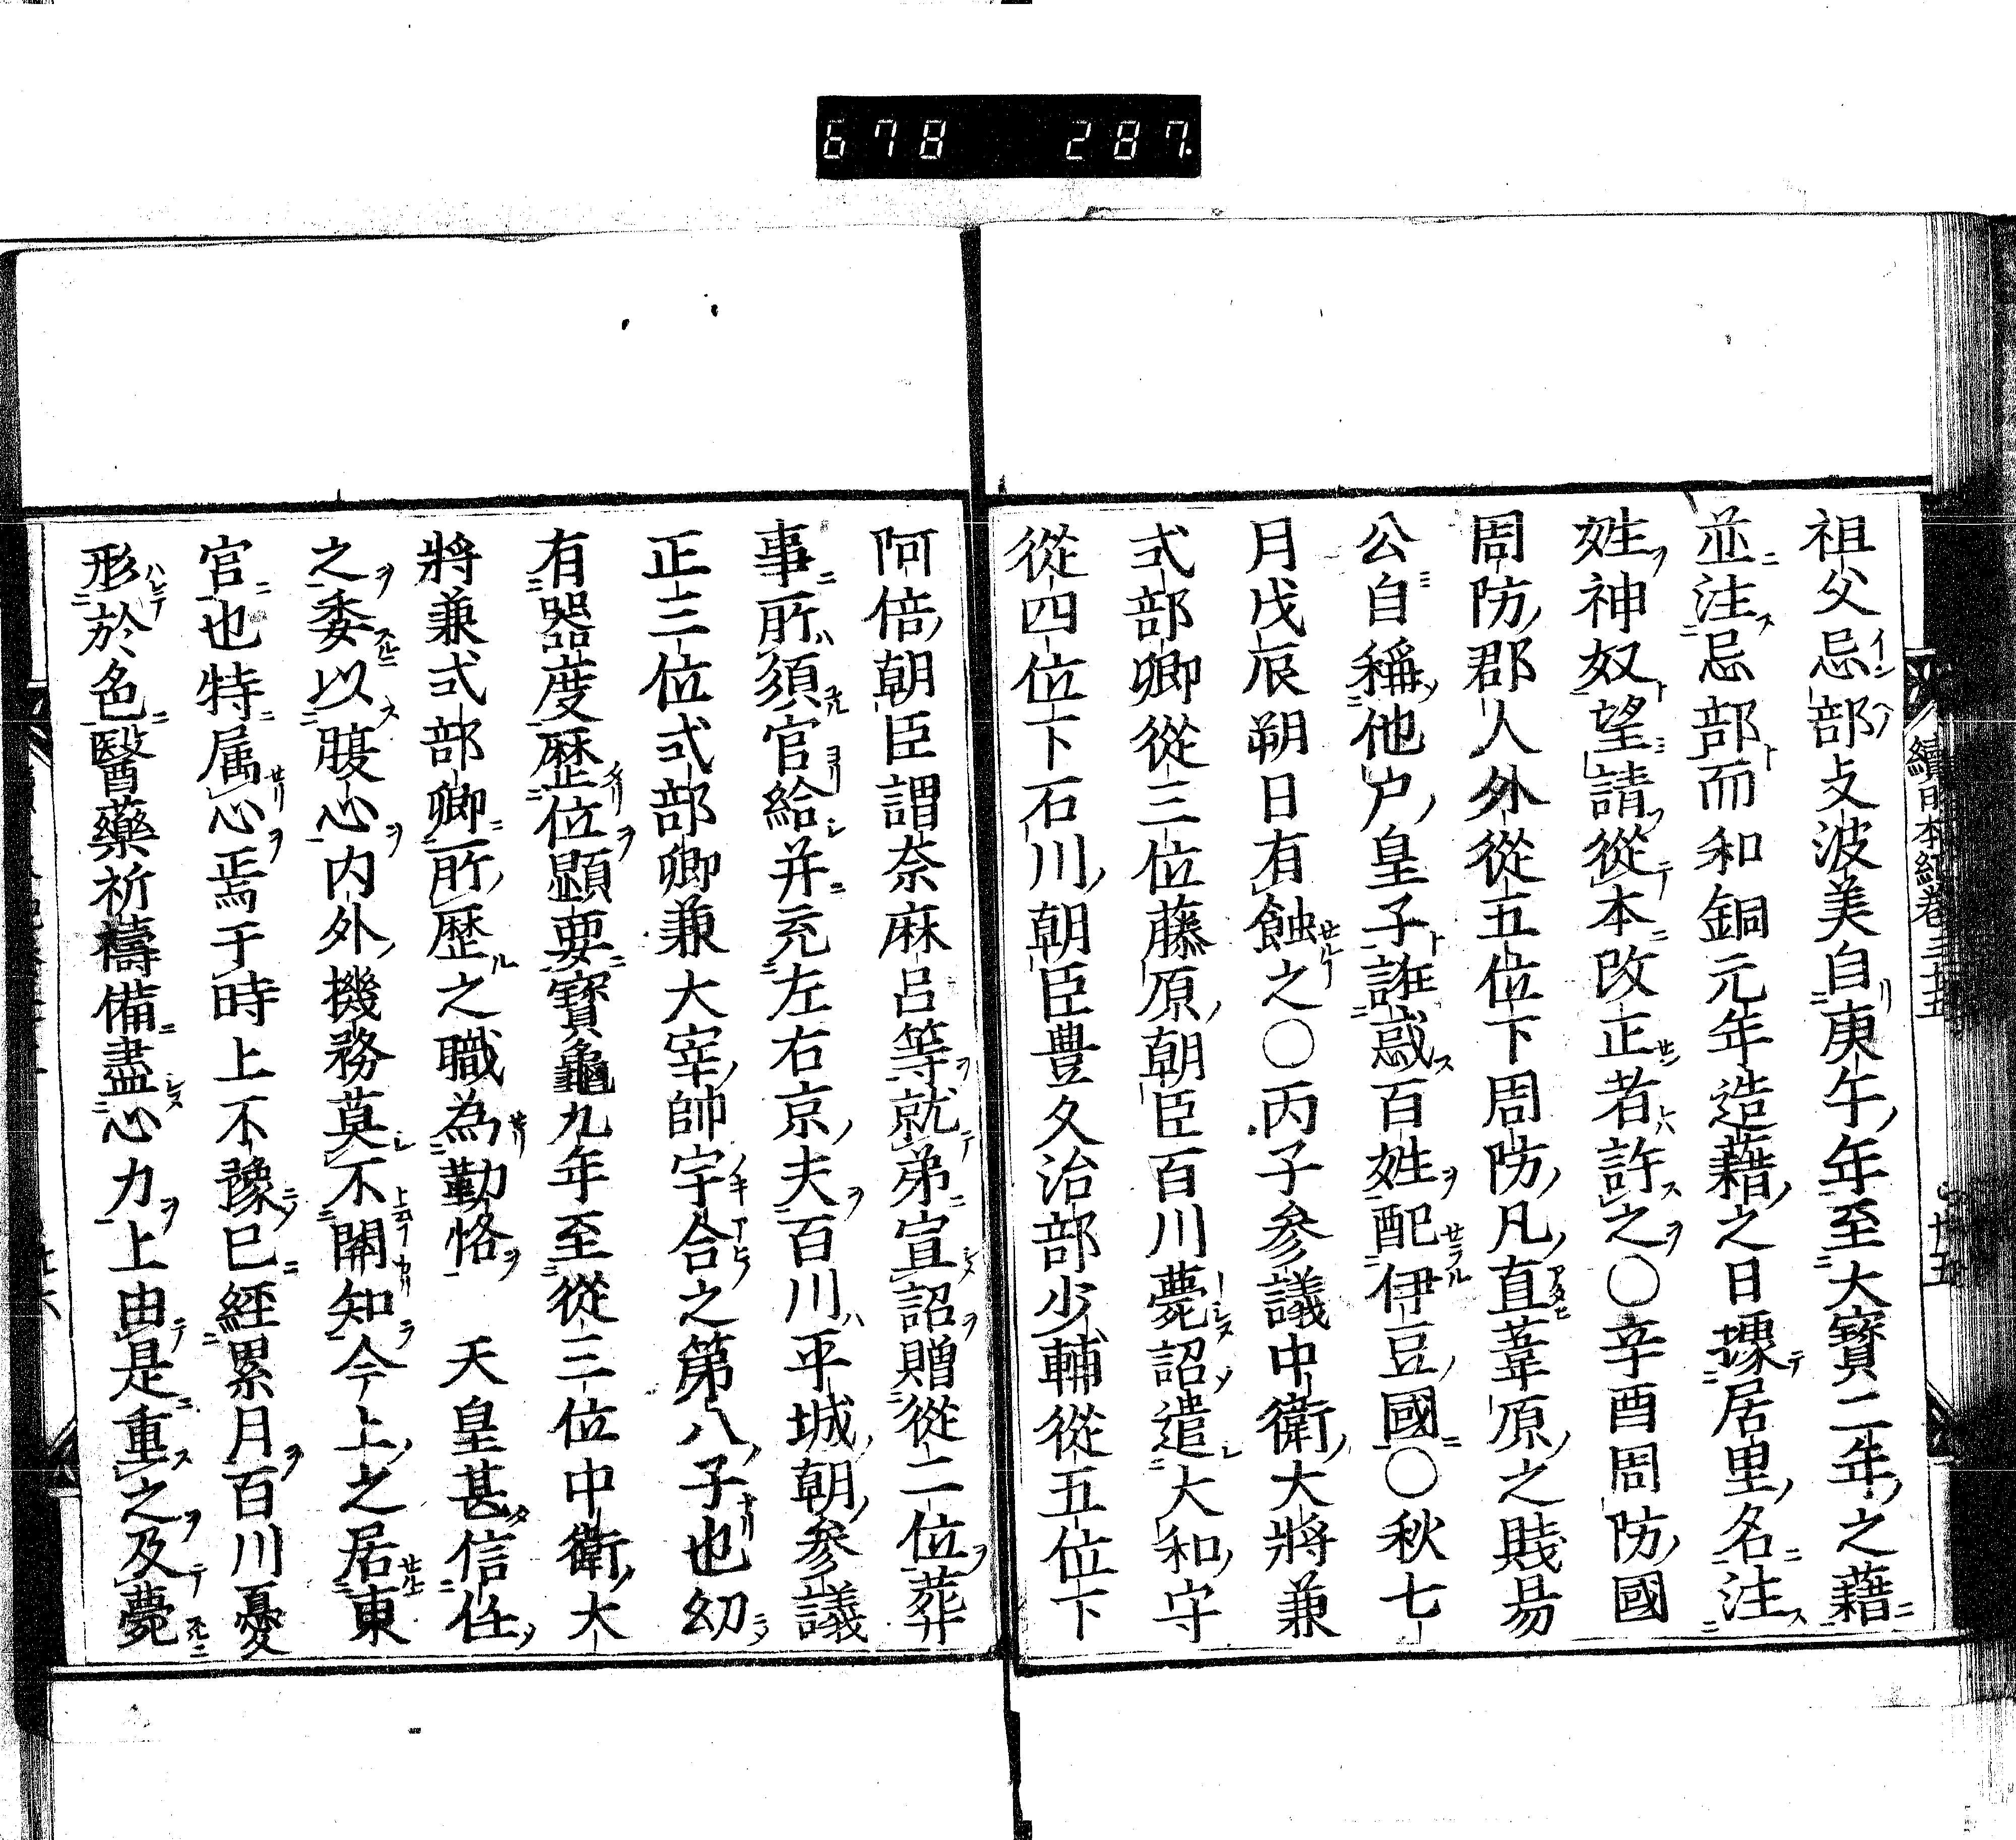 678 287
續日本紀卷三十五
廿五
祖父忌部支波美自庚午年至大寶二年之藉
並注忌部而和銅元年造藉之日據居里名注
姓神奴望請從本改正者許之〇辛酉周防國
周防郡人外從五位下周防凡直葦原之賤昜
公自稱他户皇子誑惑百姓配伊豆國〇秋七
月戊辰朔日有蝕之〇丙子參議中衛大將兼
式部卿從三位藤原朝臣百川薨詔遣大和守
從四位下石川朝臣豊久治部少輔從五位下
阿倍朝臣謂奈麻呂等就弟宣詔贈從二位葬
事所須官給并充左右京夫百川平城朝參議
正三位式部卿兼大宰帥宇合之第八子也幼
有器度歷位顯要寶龜九年至從三位中衛大
將兼式部卿所歷之職為勤恪　天皇甚信任
之委以腹心内外機務莫不關知今上之居東
官也特属心焉于時上不豫已經累月百川憂
形於色醫藥祈禱備盡心力上由是重之及薨